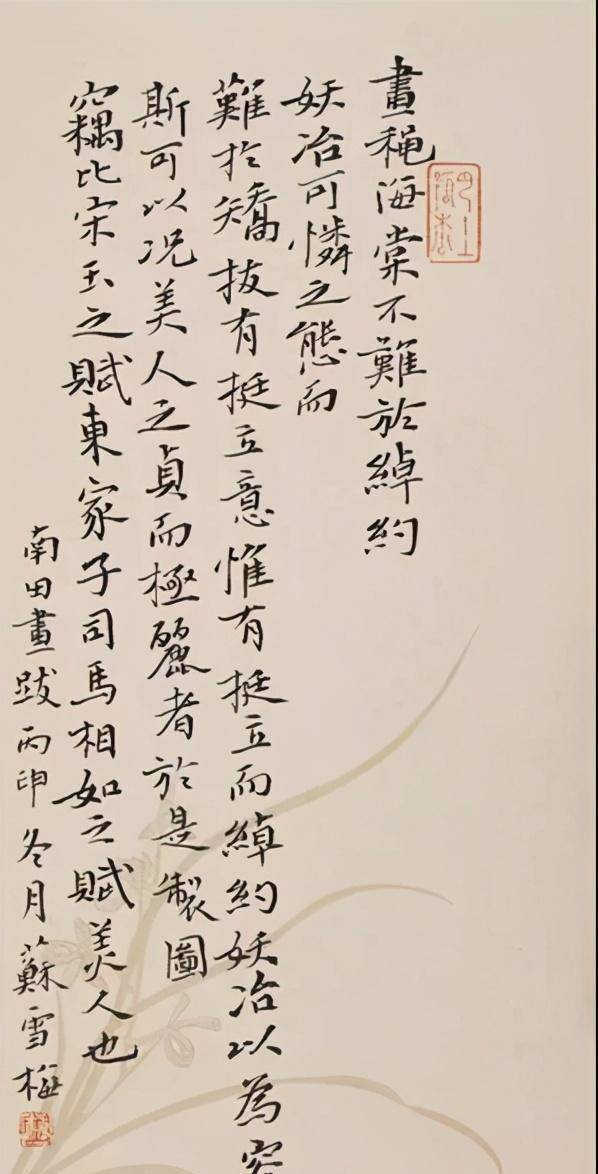 畫穐海棠不難於綽約
妖冶可憐之態而
難於矯拔有挺立意惟有挺立而綽約妖冶以為容
斯可以况美人之貞而極麗者於是製圖
竊比宋玉之賦東家子司馬相如之賦美人也
南田畫跋丙申冬月蘇雪梅